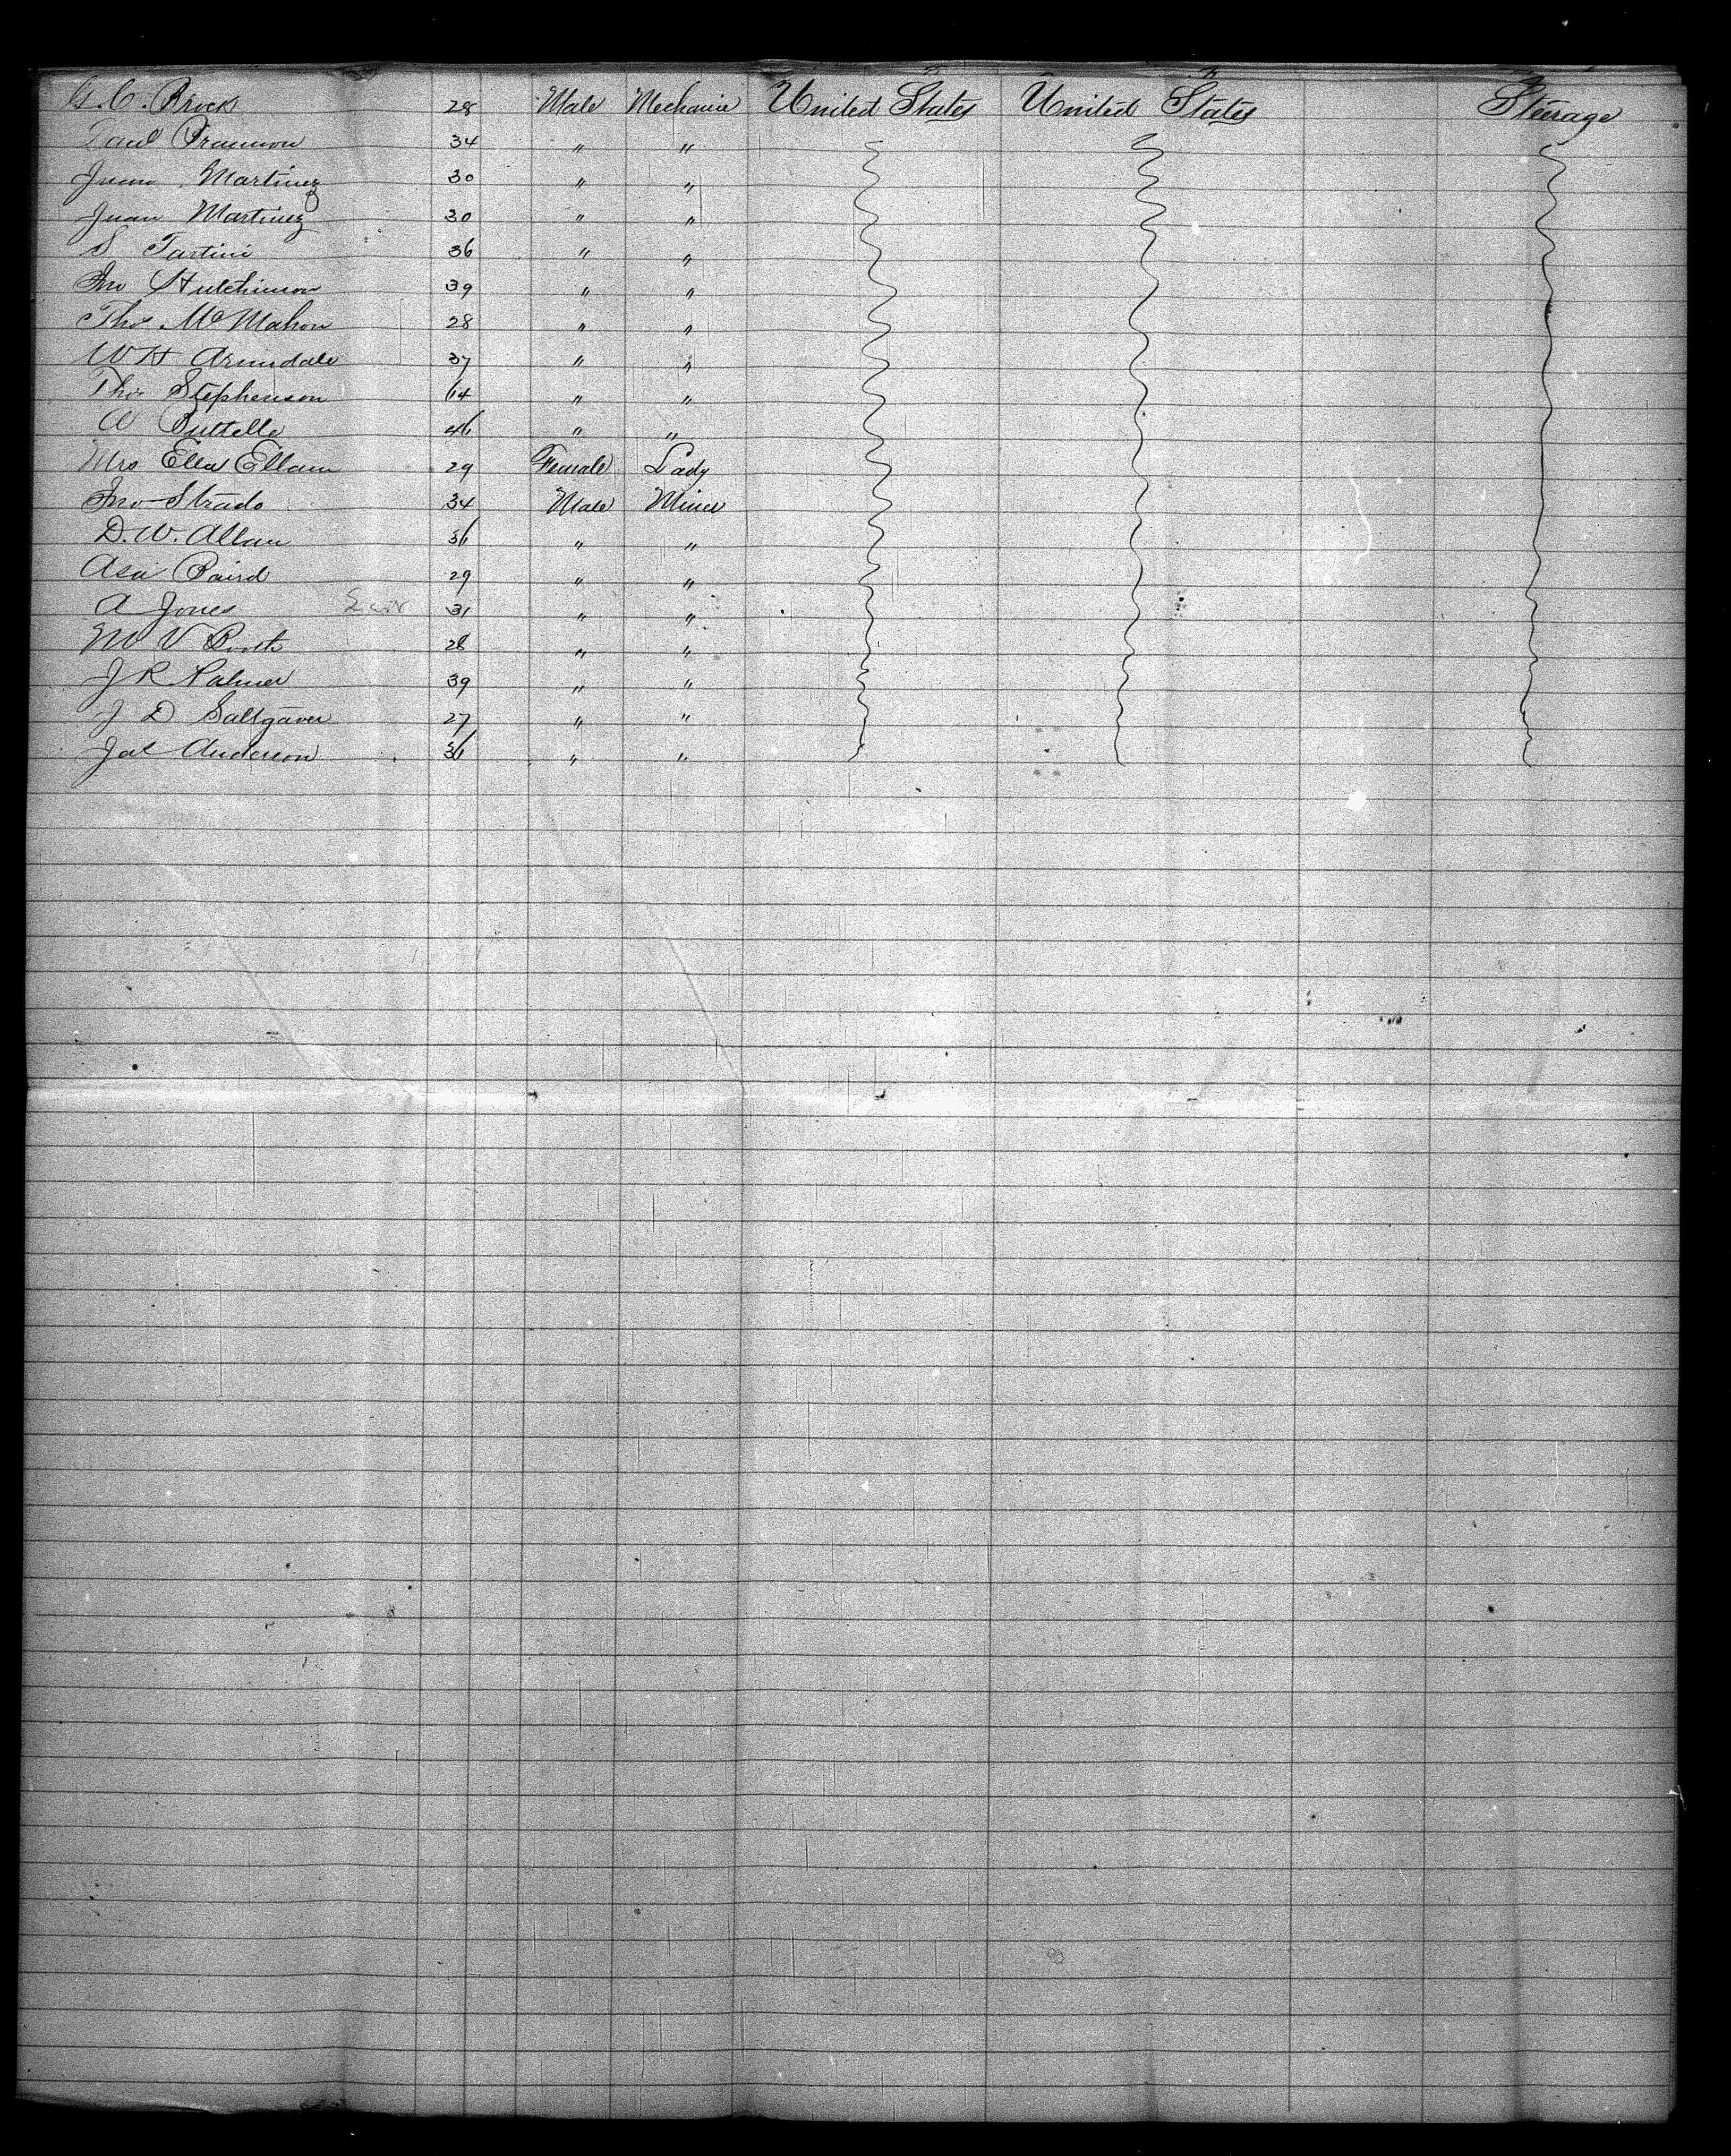 G. C. Brick 28 Male Mechanic United States United States Steerage
Paul Brannon 34 " "
Juan Martinez 30 " "
Juan Martinez 30 " "
S Tartini 36 " "
Jno Hutchinson 39 " "
Thos McMahon 28 " "
W H Arundale 37 " "
Thos Stephenson 64 " "
A Buttelle 46 " "
Mrs Ella Ellam 29 Female Lady
Jno Strado 34 Male Miner
D. W. Allan 36 " "
Asa Baird 29 " "
A Jones 31 " "
M V Booth 28 " "
J R Palmer 39 " "
J D Saltgaver 27 " "
Jas Anderson 36 " "